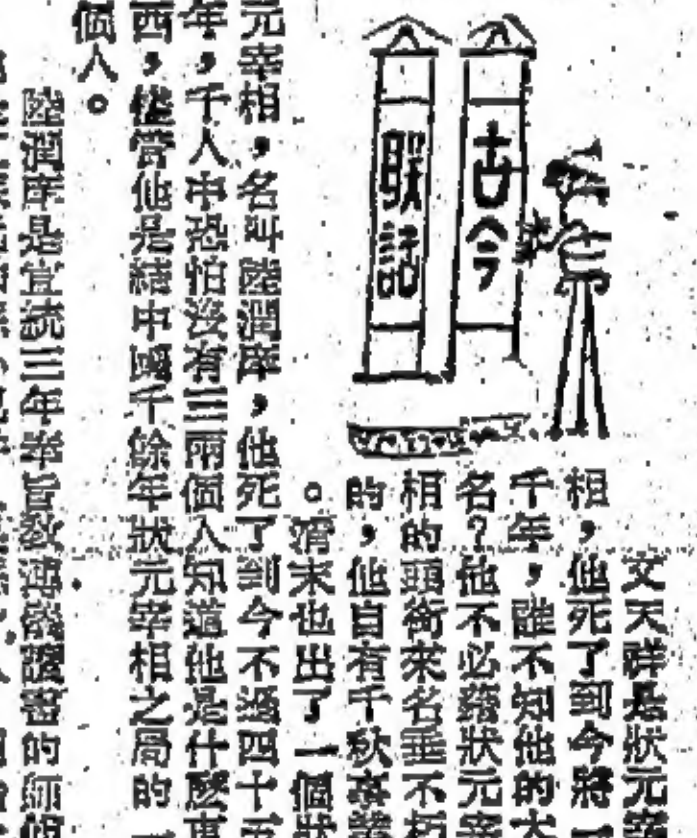 古今
聯話
文天祥是狀元宰
相,他死了到今將一
千年,誰不知他的大
名?他不必藉狀元宰
相的頭銜來名垂不朽
的,他自有千秋事業
。清末也出了一個狀
元宰相,名叫陸潤庠,他死了到今不過四十五
年,千人中恐怕沒有三兩個人知道他是什麼東
西,縱當他是結中國千餘年狀元宰相之局的一
個人。
陸潤庠是宣統三年奉旨教溥儀讀書的師傅